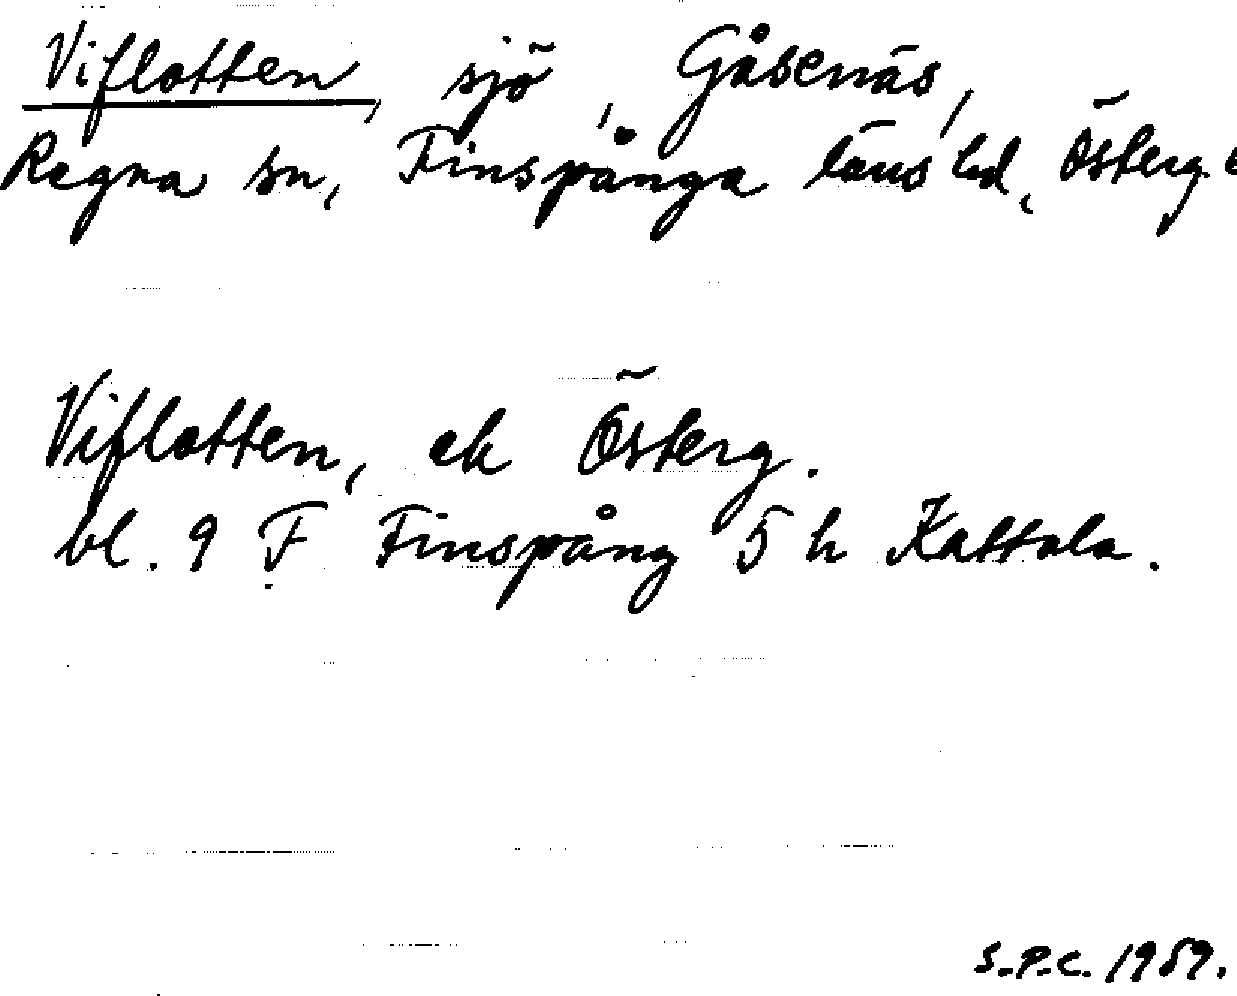 Viflotten, sjö, Gåsenäs,
Regna sn, Finspånga läns hd, Österg.
Viflotten, ek Österg.
bl. 9 F Finspång 5 h Kattala.
S.P.C. 1959.